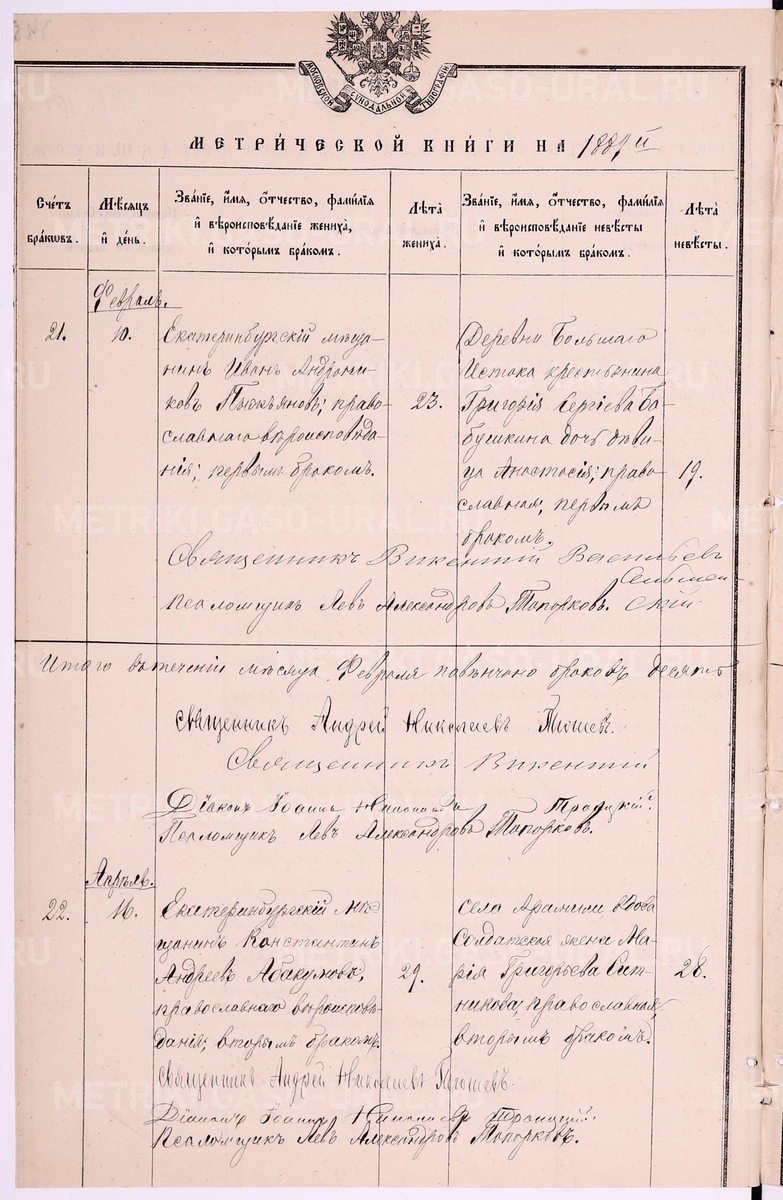 МОСКОВСКОЙ СѴНОДАЛЬНОЙ ТИПОГРАФІИ
МЕТРИ́ЧЕСКОЙ КНИ́ГИ НА 1889й
Сче́тъ бра́кωвъ.
Мѣ́сяцъ и҆ де́нь.
Зва́нїе, и҆́мя, ѻ҆́тчество, фами́лїя и҆ вѣроисповѣ́данїе жениха̀, и҆ кото́рымъ бра́комъ.
Лѣта̀ жениха̀.
Зва́нїе, и҆́мя, ѻ҆́тчество, фами́лїя и҆ вѣроисповѣ́данїе невѣ́сты и҆ кото́рымъ бра́комъ.
Лѣта̀ невѣ́сты.
Февраль.
21.
10.
Екатеринбургскій мѣща-
нинъ Иванъ Андрони-
ковъ Пыжьяновъ; право-
славнаго вѣроисповѣда-
нія; первымъ бракомъ.
23.
Деревни Большаго
Истока крестьянина
Григорія Сергіева Ба-
бушкина дочь дѣви-
ца Анастасія; право-
славная; первымъ
бракомъ.
19.
Священникъ Викентій Васильевъ
Сельмен-
Псаломщикъ Левъ Александровъ Топорковъ. скій
Итого въ теченіи мѣсяца Февраля повѣнчано браковъ десять
Священникъ Андрей Николаевъ Тюшевъ.
Священникъ Викентій
Діаконъ Іоаннъ Троицкій
Псаломщикъ Левъ Александровъ Топорковъ.
Апрѣль.
22.
16.
Екатеринбургскій мѣ-
щанинъ Константинъ
Андреевъ Абакумовъ;
православнаго вѣроисповѣ-
данія; вторымъ бракомъ.
29.
Села Арамили вдова
Солдатская жена Ма-
рія Григорьева Сит-
никова; православная;
вторымъ бракомъ.
28.
Священникъ Андрей Николаевъ Тюшевъ.
Діаконъ Іоаннъ Троицкій
Псаломщикъ Левъ Александровъ Топорковъ.
METRIKI.GASU-URAL.RU